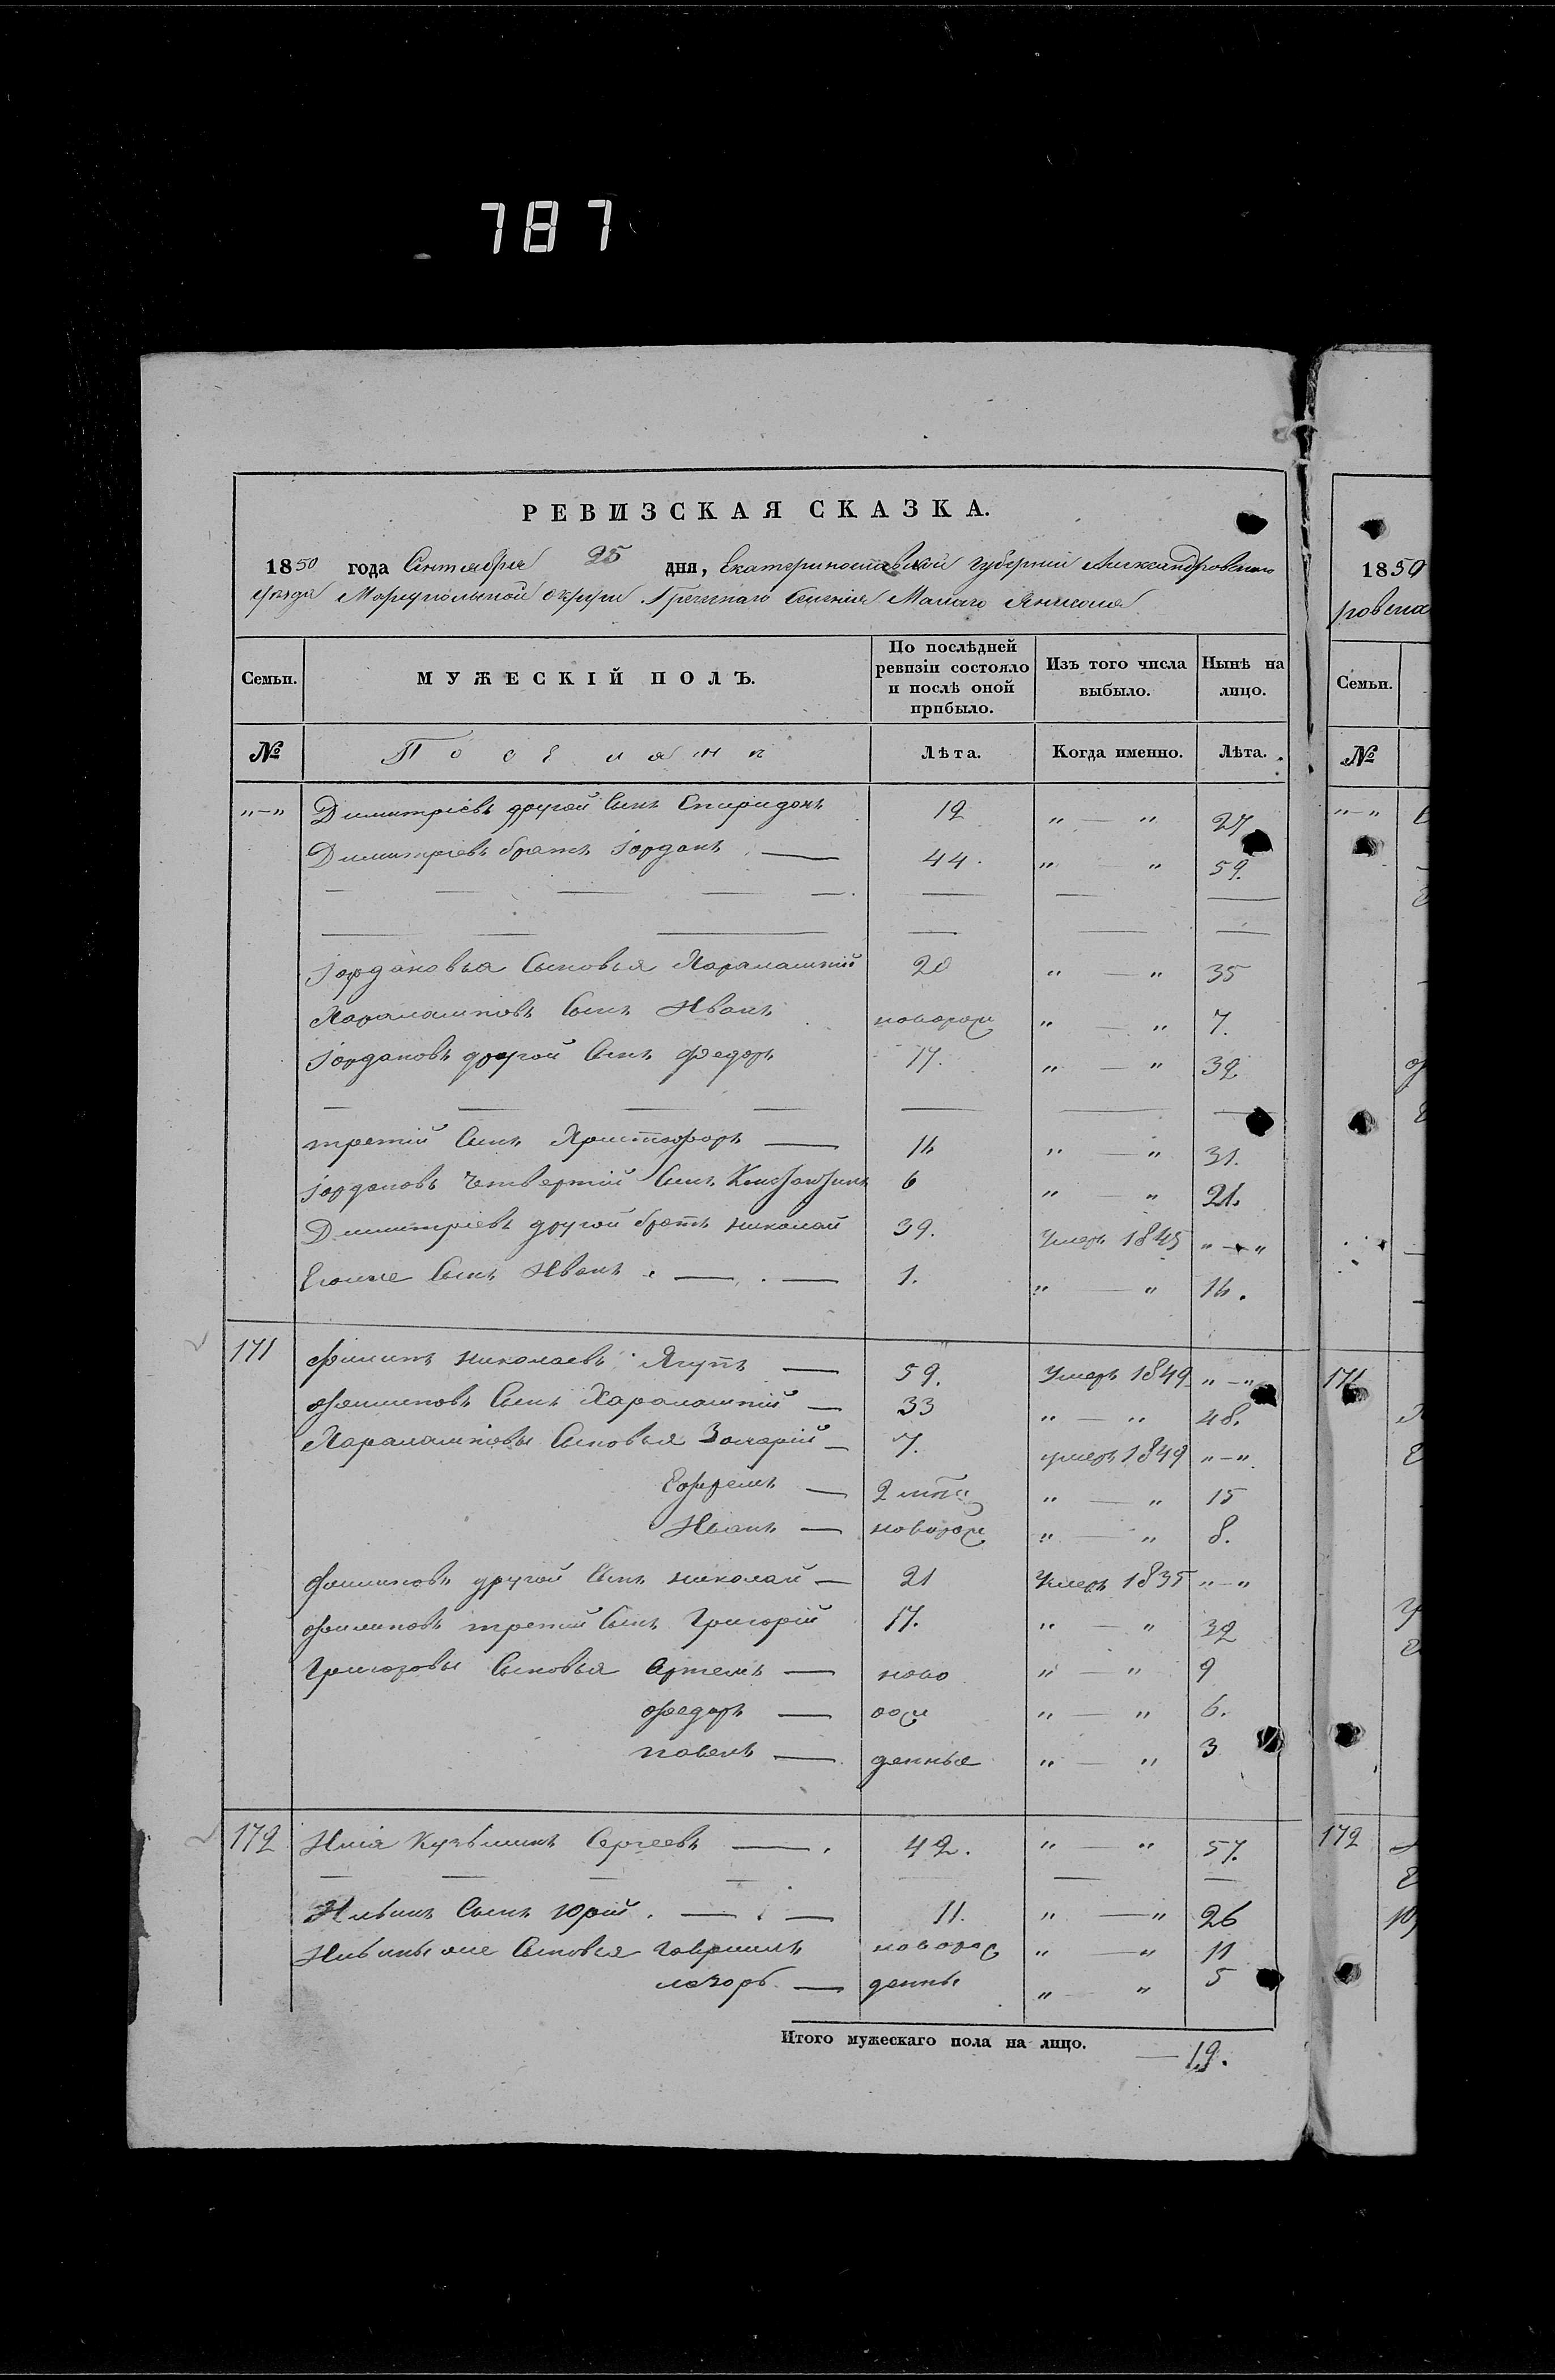 787
РЕВИЗСКАЯ СКАЗКА.
1850 года Сентября 25 дня, Екатеринославской губерніи Александровского
уезда Мариупольской округи Греческаго Селенія Малаго Янисоля
1850
ровска
Семьи. МУЖЕСКІЙ ПОЛЪ. По послѣдней ревизіи состояло и послѣ оной прибыло. Изъ того числа выбыло. Нынѣ на лицо. Семьи.
№ Поселяни Лѣта. Когда именно. Лѣта. №
„—„ Димитріевъ другой Сынъ Спиридонъ 12 „—„ 27 „—„
Димитріевъ братъ Іорданъ — 44. „—„ 59.
Іордановы Сыновья Харалампій 20 „—„ 35
Харалампіевъ Сынъ Иванъ новорож „—„ 7.
Іордановъ другой Сынъ Федоръ 17. „—„ 32
третій Сынъ Христофоръ — 16 „—„ 31.
Іордановъ четвертій Сынъ 6 „—„ 21.
Димитріевъ другой братъ николай 39. Умеръ 1845 „—„
Егоже Сынъ Иванъ — 1. „—„ 16.
171 Филипъ николаевъ Ягупъ — 59. Умеръ 1849 „—„ 171
Филиповъ Сынъ Харалампій — 33 „—„ 48.
Харалампіевы Сыновья Захарій — 7. умеръ 1849 „—„
Ефремъ — 2 „—„ 15
Иванъ — новорож „—„ 8.
Филиповъ другой Сынъ николай — 21 Умеръ 1835 „—„
Филиповъ третій Сынъ Григорій 17. „—„ 32
Григоровы Сыновья Артемъ — ново „—„ 9
Федоръ — рож „—„ 6.
павелъ — денные „—„ 3
172 Илія Кузьминъ Сергеевъ — 42. „—„ 57. 172
Ильинъ Сынъ Юрій. — 11. „—„ 26
Ильины же Сыновья Гавріилъ новорож „—„ 11
лазорь — денны „—„ 5
Итого мужескаго пола на лицо. — 19.